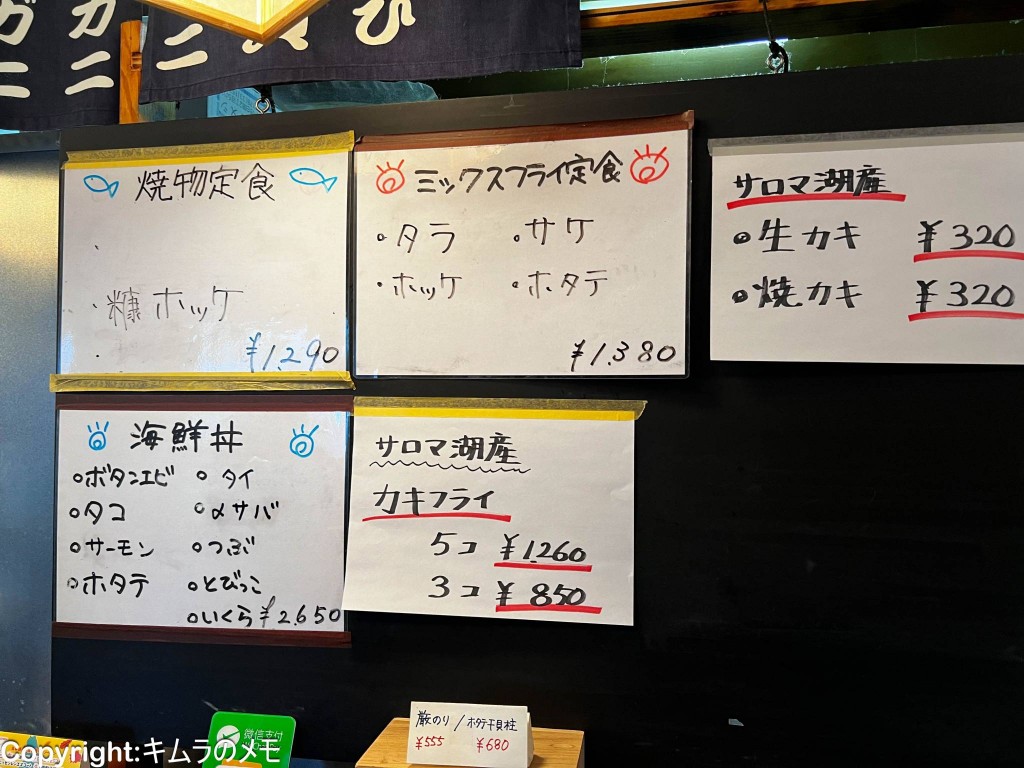 焼物定食
・
・糠ホッケ
・
¥1,290
ミックスフライ定食
・タラ ・サケ
・ホッケ ・ホタテ
¥1,380
サロマ湖産
・生カキ ¥320
・焼カキ ¥320
海鮮丼
・ボタンエビ ・タイ
・タコ ・〆サバ
・サーモン ・つぶ
・ホタテ ・とびっこ
・いくら ¥2,650
サロマ湖産
カキフライ
5コ ¥1,260
3コ ¥850
厳のり/ホタテ干貝柱
¥555 ¥680
微信支付
Copyright:キムラのメモ